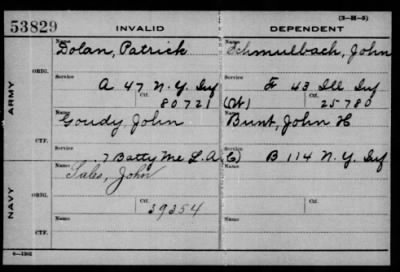 (3-81-5)
53829 INVALID DEPENDENT
ARMY
NAVY
ORIG.
CTF.
ORIG.
CTF.
Name Dolan, Patrick
Name Schmulbach, John
Service A 47 N.Y. Inf
Service F 43 Ill Inf
Ctf. 80721
(W) Ctf. 25780
Name Goudy, John
Name Bunt, John H
Service 7 Batty Me L.A.
(C) Service B 114 N.Y. Inf
Name Sales, John
Name
Ctf. 39354
Ctf.
Name
Name